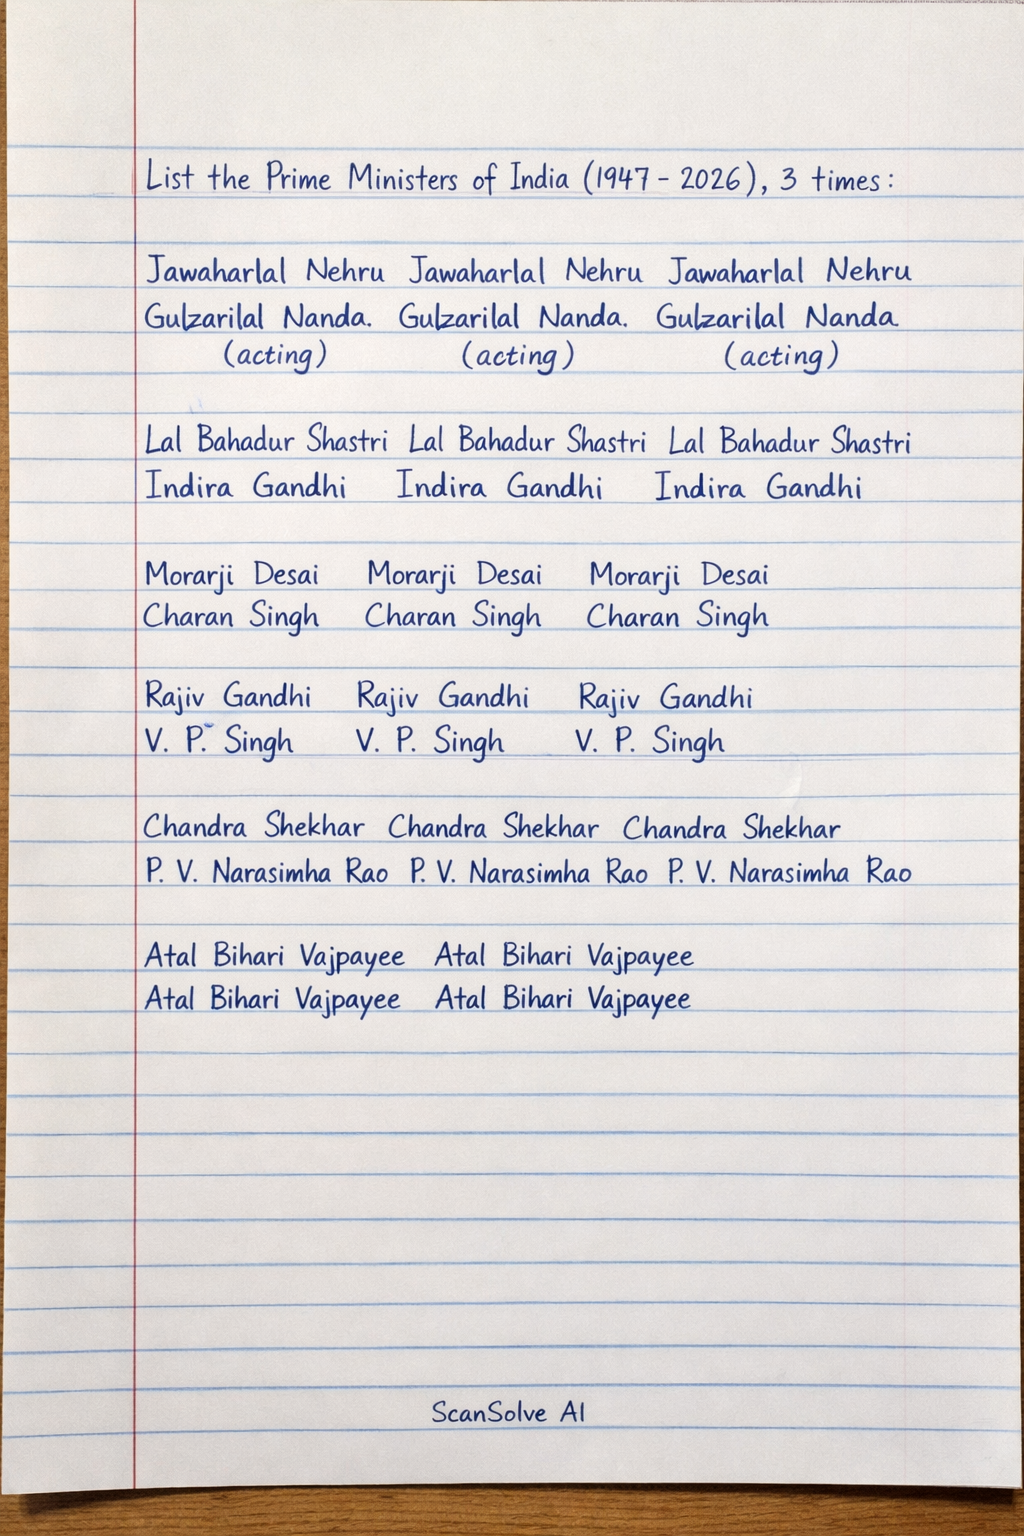 List the Prime Ministers of India (1947 - 2026), 3 times:
Jawaharlal Nehru Jawaharlal Nehru Jawaharlal Nehru
Gulzarilal Nanda. Gulzarilal Nanda. Gulzarilal Nanda.
(acting) (acting) (acting)
Lal Bahadur Shastri Lal Bahadur Shastri Lal Bahadur Shastri
Indira Gandhi Indira Gandhi Indira Gandhi
Morarji Desai Morarji Desai Morarji Desai
Charan Singh Charan Singh Charan Singh
Rajiv Gandhi Rajiv Gandhi Rajiv Gandhi
V. P. Singh V. P. Singh V. P. Singh
Chandra Shekhar Chandra Shekhar Chandra Shekhar
P. V. Narasimha Rao P. V. Narasimha Rao P. V. Narasimha Rao
Atal Bihari Vajpayee Atal Bihari Vajpayee
Atal Bihari Vajpayee Atal Bihari Vajpayee
ScanSolve AI